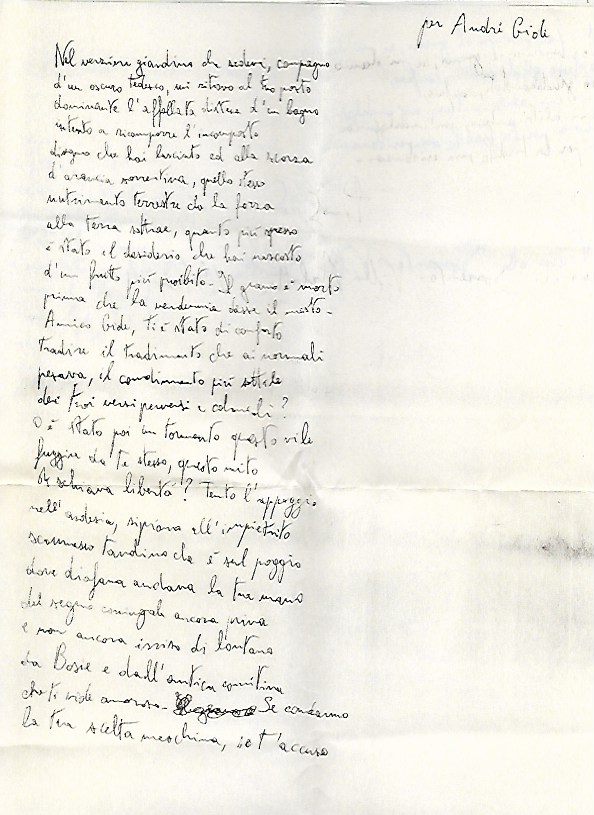 per André Gide
Nel verziere giardino che sedevi, compagno
d'un oscuro tedesco, mi ritrovo al tuo posto
dominante l'affollata distesa d'un bagno
intento a ricomporre l'incomposto
disegno che hai lasciato ed alla scorza
d'arancia sorrentina, quello stesso
nutrimento terrestre che la forza
alla terra sottrae, quanto più spesso
è stato il desiderio che hai nascosto
d'un frutto più proibito. Il grano è morto
prima che la vendemmia desse il mosto.
Amico Gide, ti è stato di conforto
tradire il tradimento che ai normali
pesava, il condimento più sottile
dei tuoi versi perversi e
O è stato poi un tormento questo vile
fuggire da te stesso, questo mito
di schiava libertà? Tento l'appoggio
nell'ardesia, all'impietrito
scommesso che è sul poggio
dove diafana andava la tua mano
del segno coniugale ancora priva
e non ancora irriso di lontano
da Bosie e dall'antica comitiva
che ti vide amoroso. Se condanno
la tua scelta meschina, se t'accuso